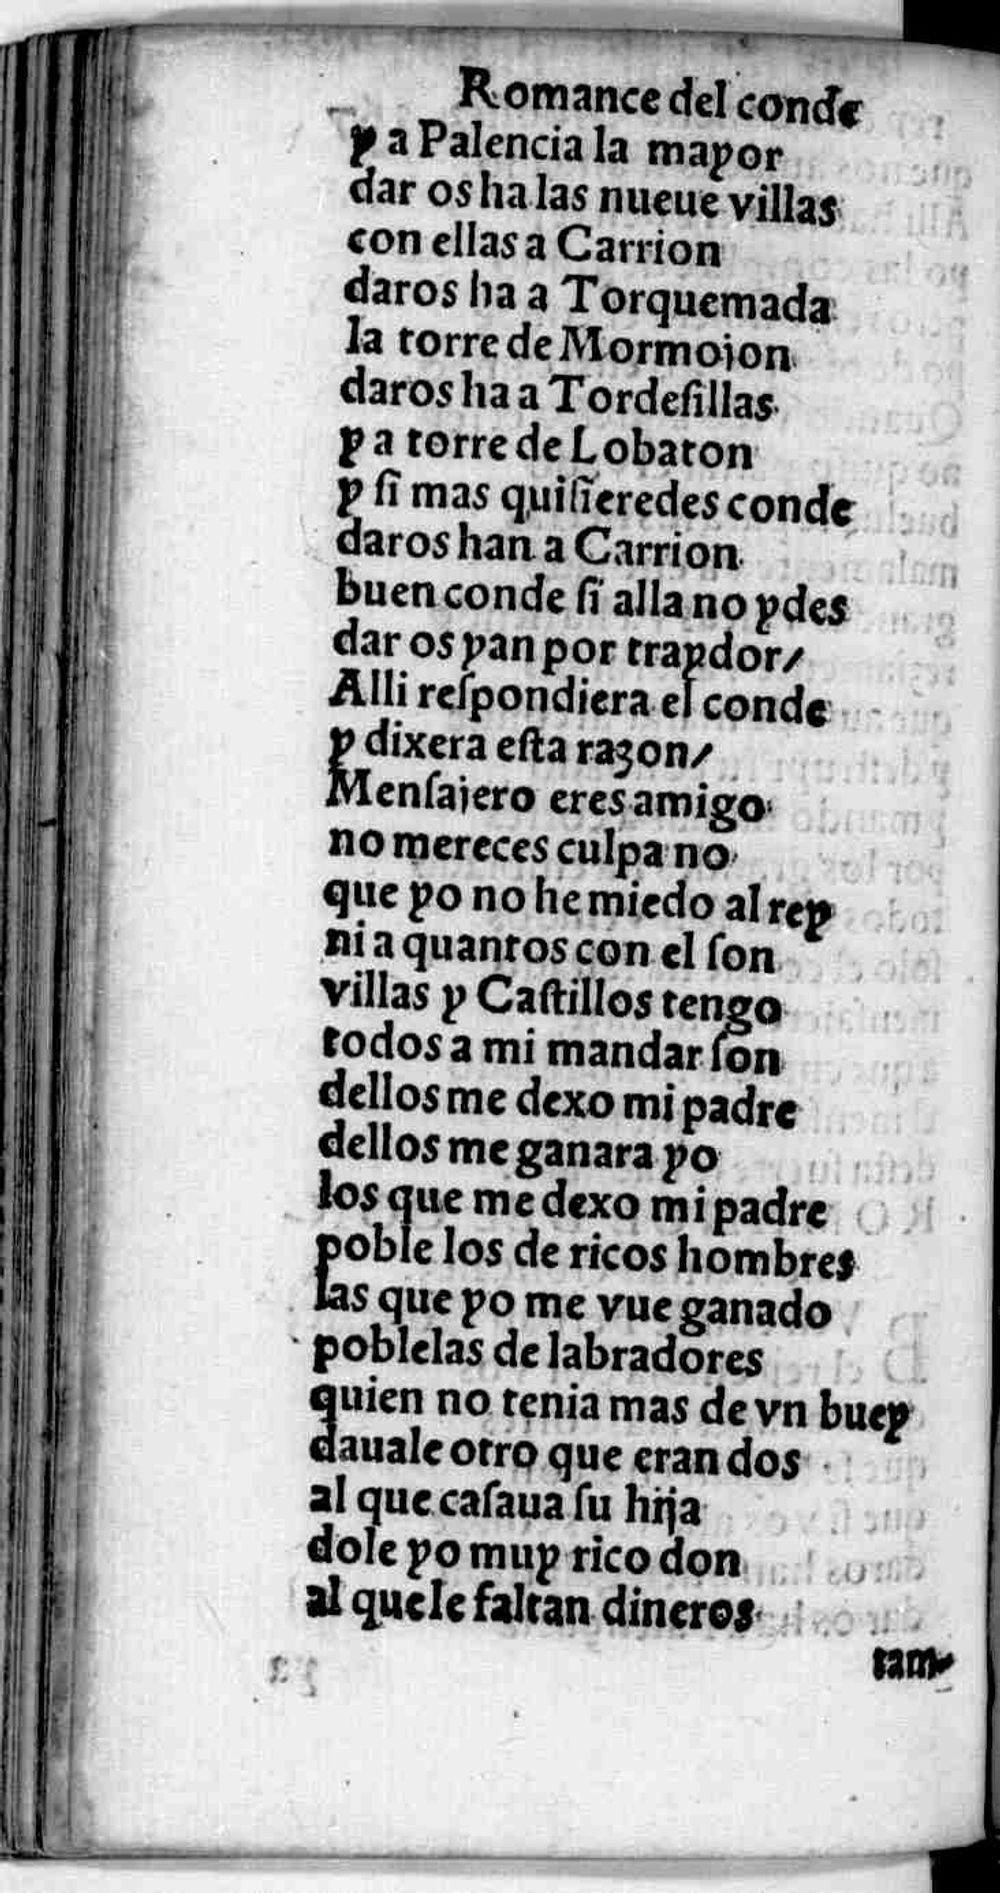 Romance del conde
y a Palencia la mayor
dar os ha las nueue villas
con ellas a Carrion
daros ha a Torquemada
la torre de Mormojon
daros ha a Tordeſillas
y a torre de Lobaton
y ſi mas quiſieredes conde
daros han a Carrion
buen conde ſi alla no ydes
dar os yan por traydor/
Alli reſpondiera el conde
y dixera eſta razon/
Menſajero eres amigo
no mereces culpa no
que yo no he miedo al rey
ni a quantos con el ſon
villas y Caſtillos tengo
todos a mi mandar ſon
dellos me dexo mi padre
dellos me ganara yo
los que me dexo mi padre
poble los de ricos hombres
las que yo me vue ganado
poblelas de labradores
quien no tenia mas de vn buey
dauale otro que eran dos
al que caſaua ſu hija
dole yo muy rico don
al que le faltan dineros
tam-